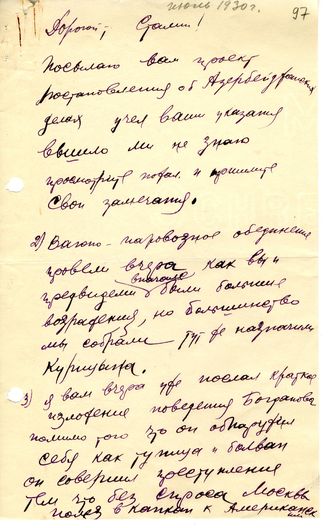 июль 1930г.
97
Дорогой, Сталин!
Посылаю вам проект
постановления об Азербейджанских
делах учел ваши указания
вышло ли не знаю
просмотрите пожал. и пришлите
свои замечания.
2) Вагоно-паровозное обединение
провели вчера как вы и
вначале
предвидели были большие
возражения, но большинство
мы собрали тут же назначили
3) я вам вчера уже послал краткое
изложение поведения Богданова
помимо того что он обнаружил
себя как тупица и болван
он совершил преступление
тем что без спроса Москвы
полез в капкан к Американск